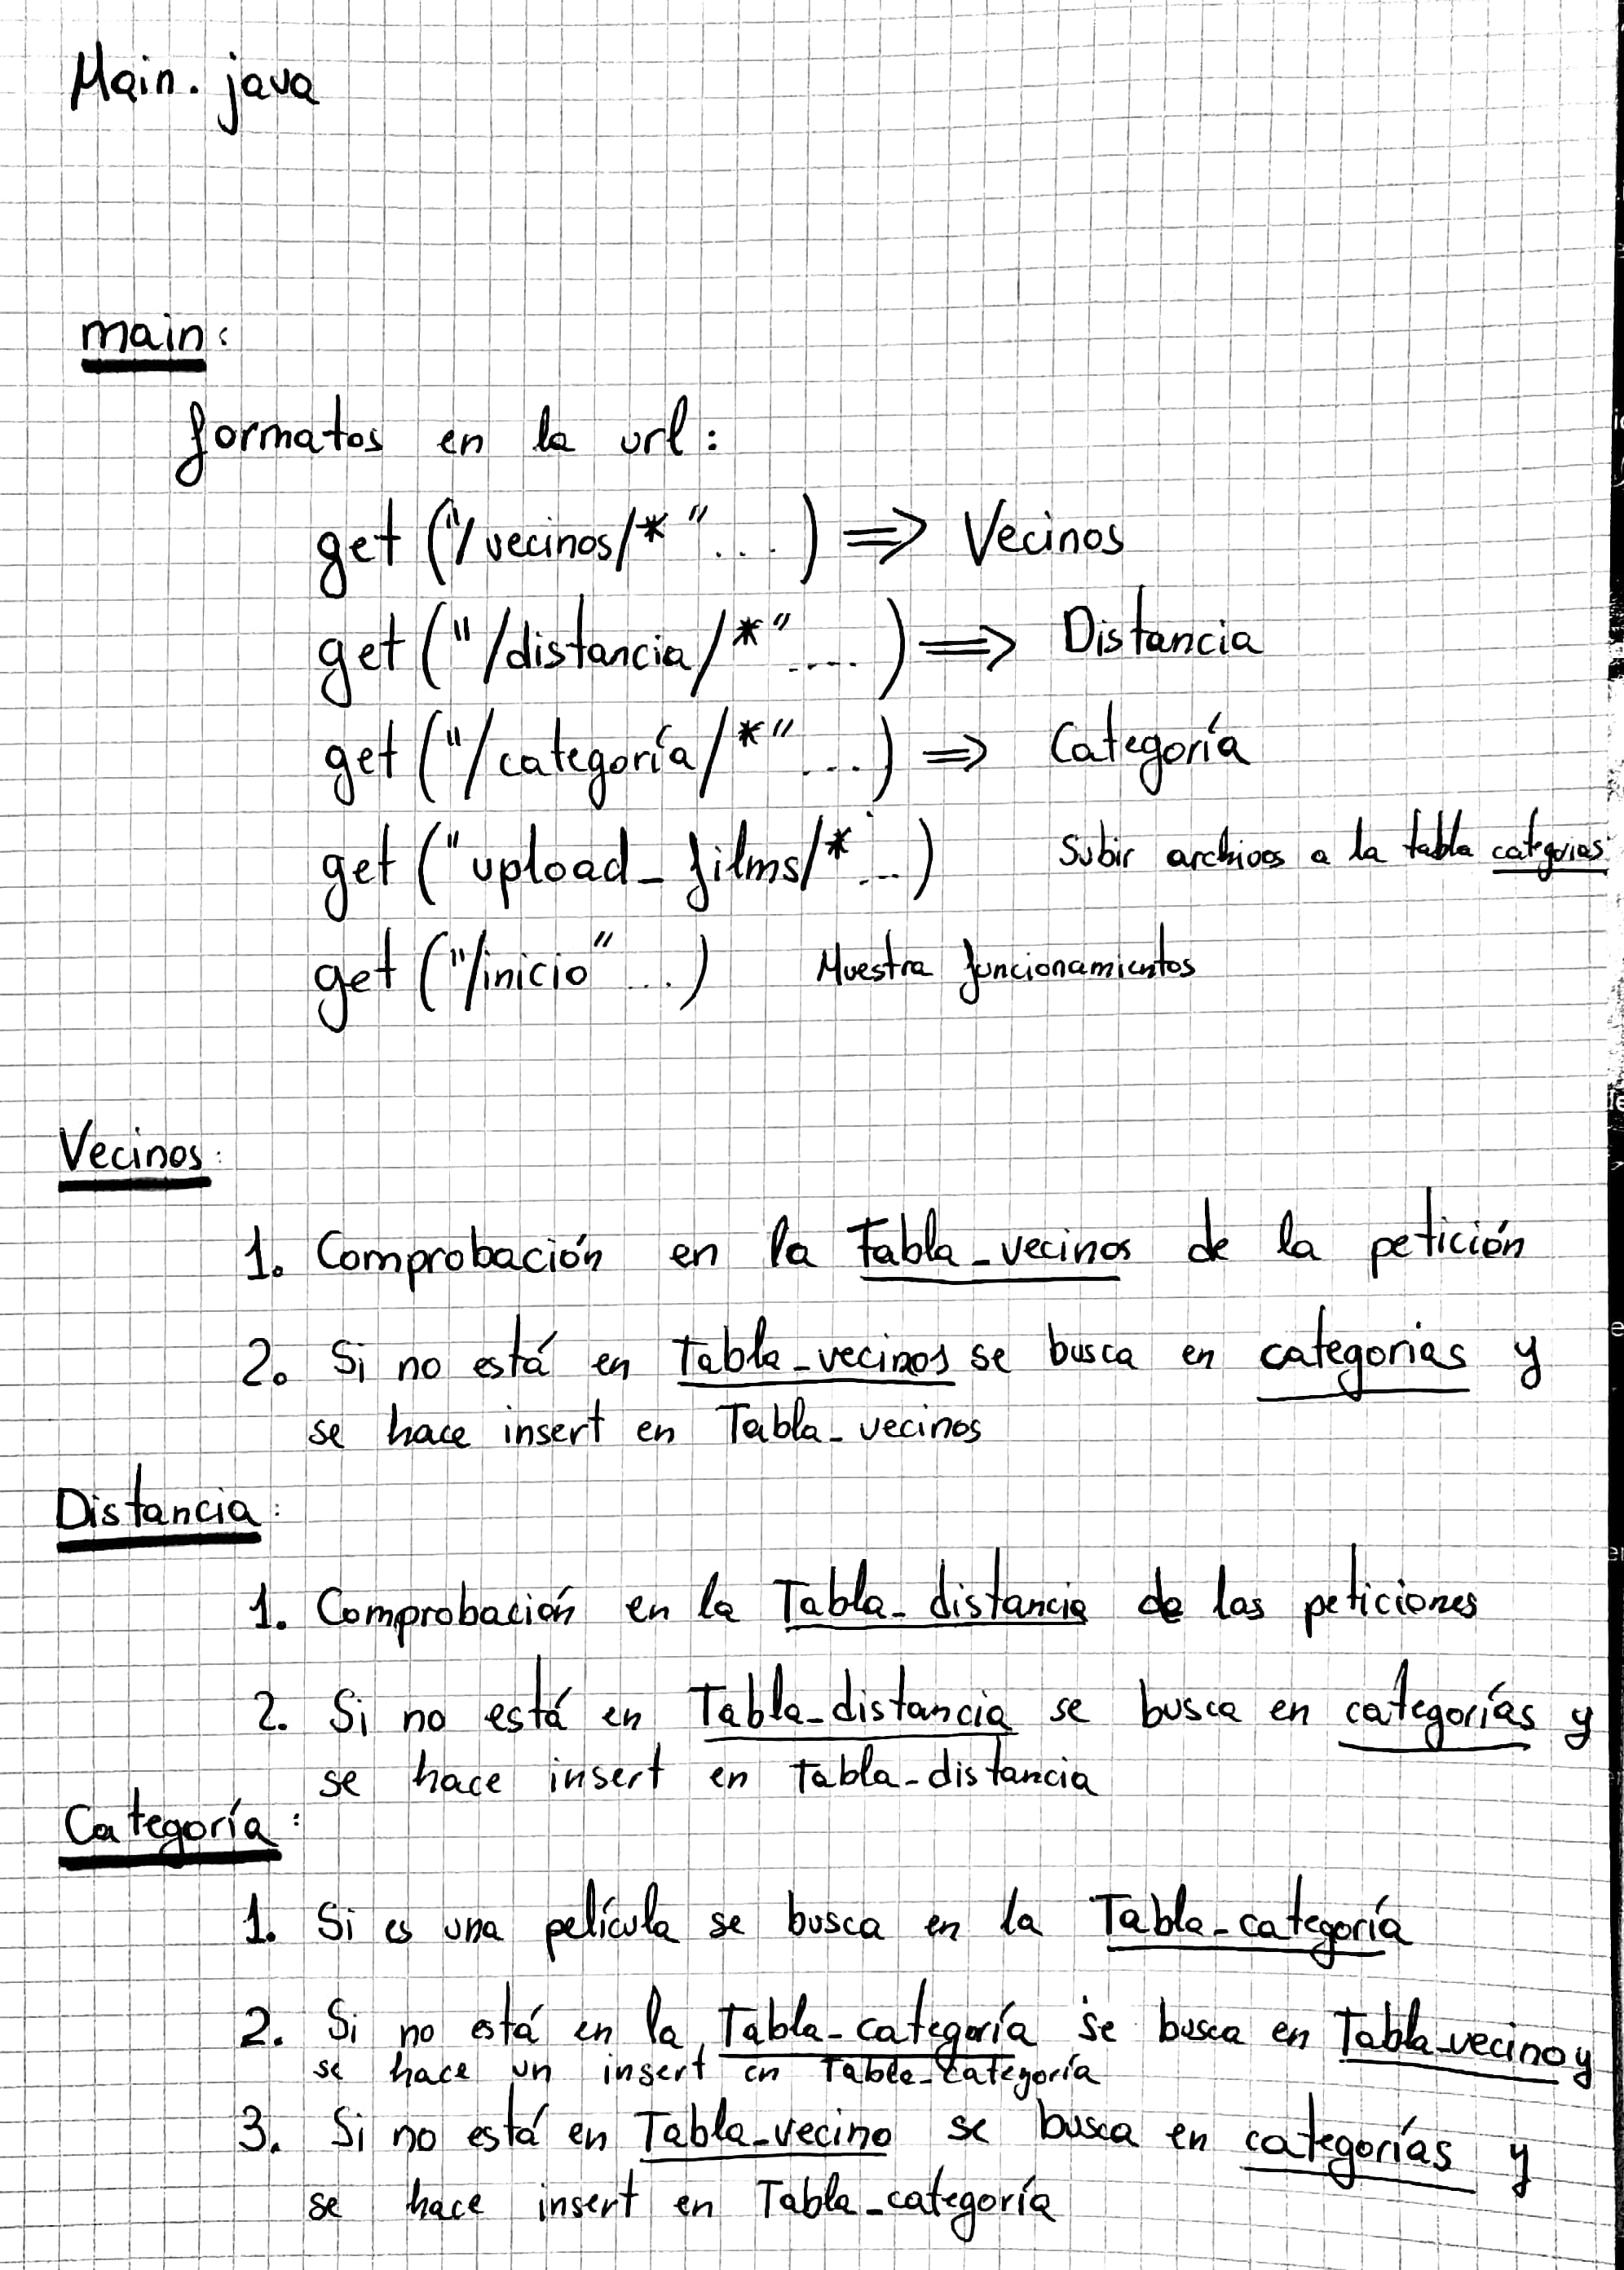 Main.java
main:
formatos en la url:
get ("/vecinos/*"...) => Vecinos
get ("/distancia/*"....) => Distancia
get ("/categoría/*"...) => Categoría
get ("upload_films/*...) Subir archivos a la tabla categorias
get ("/inicio"...) Muestra funcionamientos
Vecinos:
1. Comprobación en la Tabla_vecinos de la petición
2. Si no está en Tabla_vecinos se busca en categorias y
se hace insert en Tabla_vecinos
Distancia:
1. Comprobación en la Tabla_distancia de las peticiones
2. Si no está en Tabla_distancia se busca en categorías y
se hace insert en Tabla_distancia
Categoría:
1. Si es una película se busca en la Tabla_categoría
2. Si no está en la Tabla_categoría se busca en Tabla_vecino y
se hace un insert en Tabla_categoría
3. Si no está en Tabla_vecino se busca en categorías y
se hace insert en Tabla_categoría